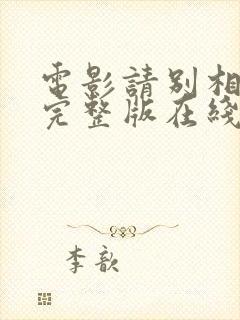 電影請別相
完整版在綫
李歆